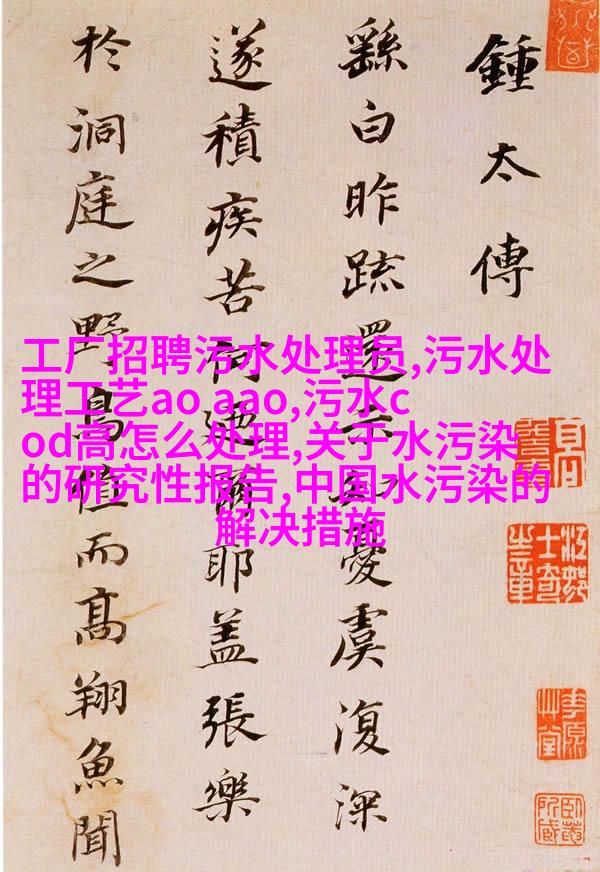 鍾太傅
繇白昨疏還示知憂虞復深
遂積疾苦何迺爾耶蓋張樂
於洞庭之野鳥值而高翔魚聞
工厂招聘污水处理员,污水处
理工艺ao aao,污水c
od高怎么处理,关于水污染
的研究性报告,中国水污染的
解决措施